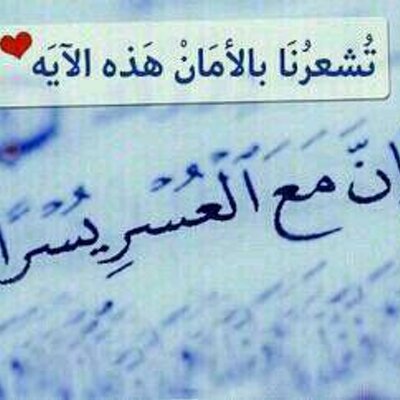 تُشعرُنَا بالأمَانْ هَذه الآيَه
إنّ مَعَ العُسْرِ يُسْرًا